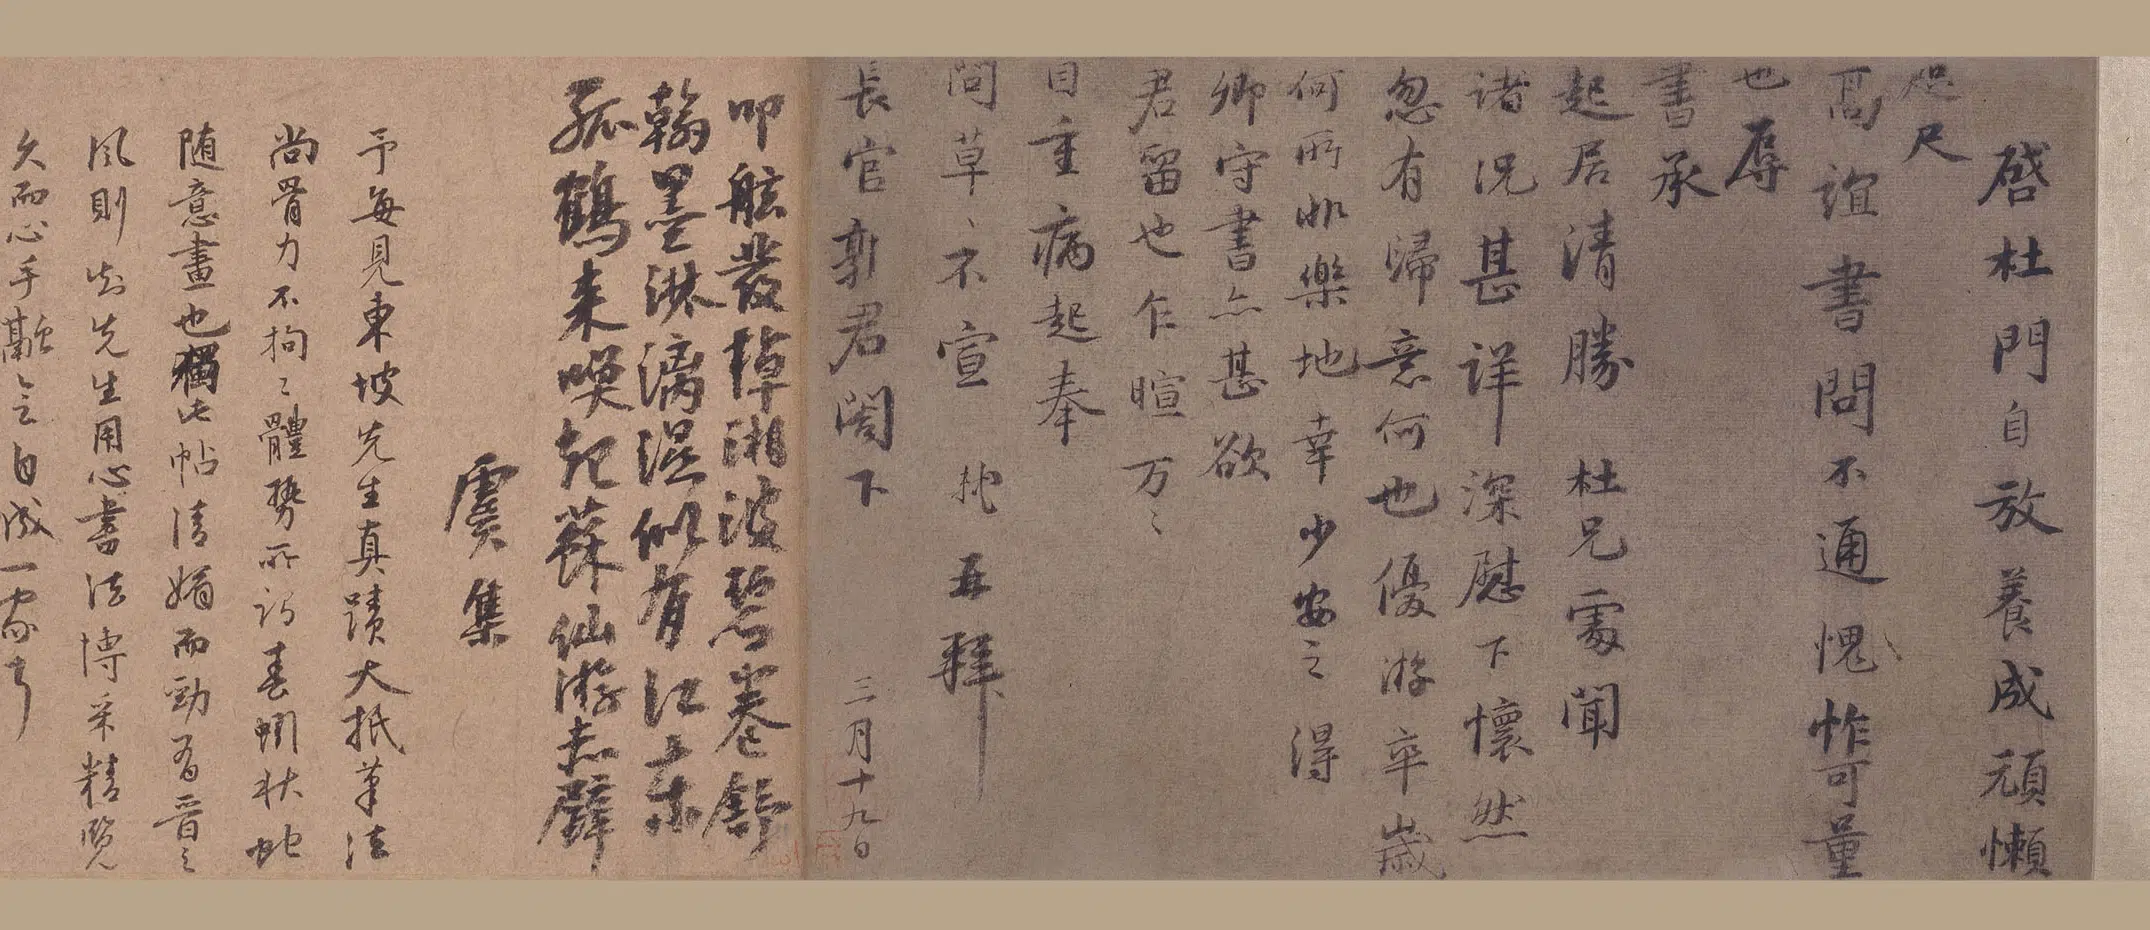 啓杜門自放養成頑懶
咫尺
高誼書問不通愧怍可量
也辱
書承
起居清勝 杜兄處聞
諸況甚詳深慰下懷然
忽有歸意何也優游卒歲
何所非樂地幸少安之得
卿守書亦甚欲
君留也乍暄万〻
自重病起奉
問草〻不宣 軾 再拜
長官郭君閣下 三月十九日
叩舷發棹湘波碧卷舒
翰墨淋漓濕似有江東
孤鶴來喚起蘇仙游赤壁
虞集
予每見東坡先生真蹟大抵筆法
尚骨力不拘〻體勢所謂春蚓秋蛇
随意畫也獨此帖清媚而勁有晉之
風則知先生用心書法博采精覽
久而心手自成一家